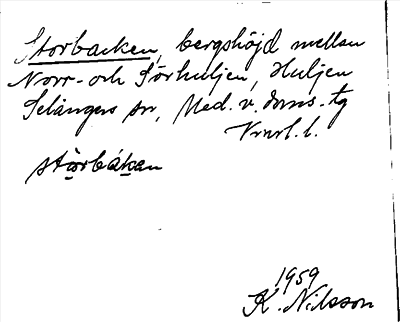 Storbacken, bergshöjd mellan
Norr- och Sörhuljen, Huljen
Selångers sn, Med. v. doms. tg
Vnrl. l.
störbákan
1959
K. Nilsson